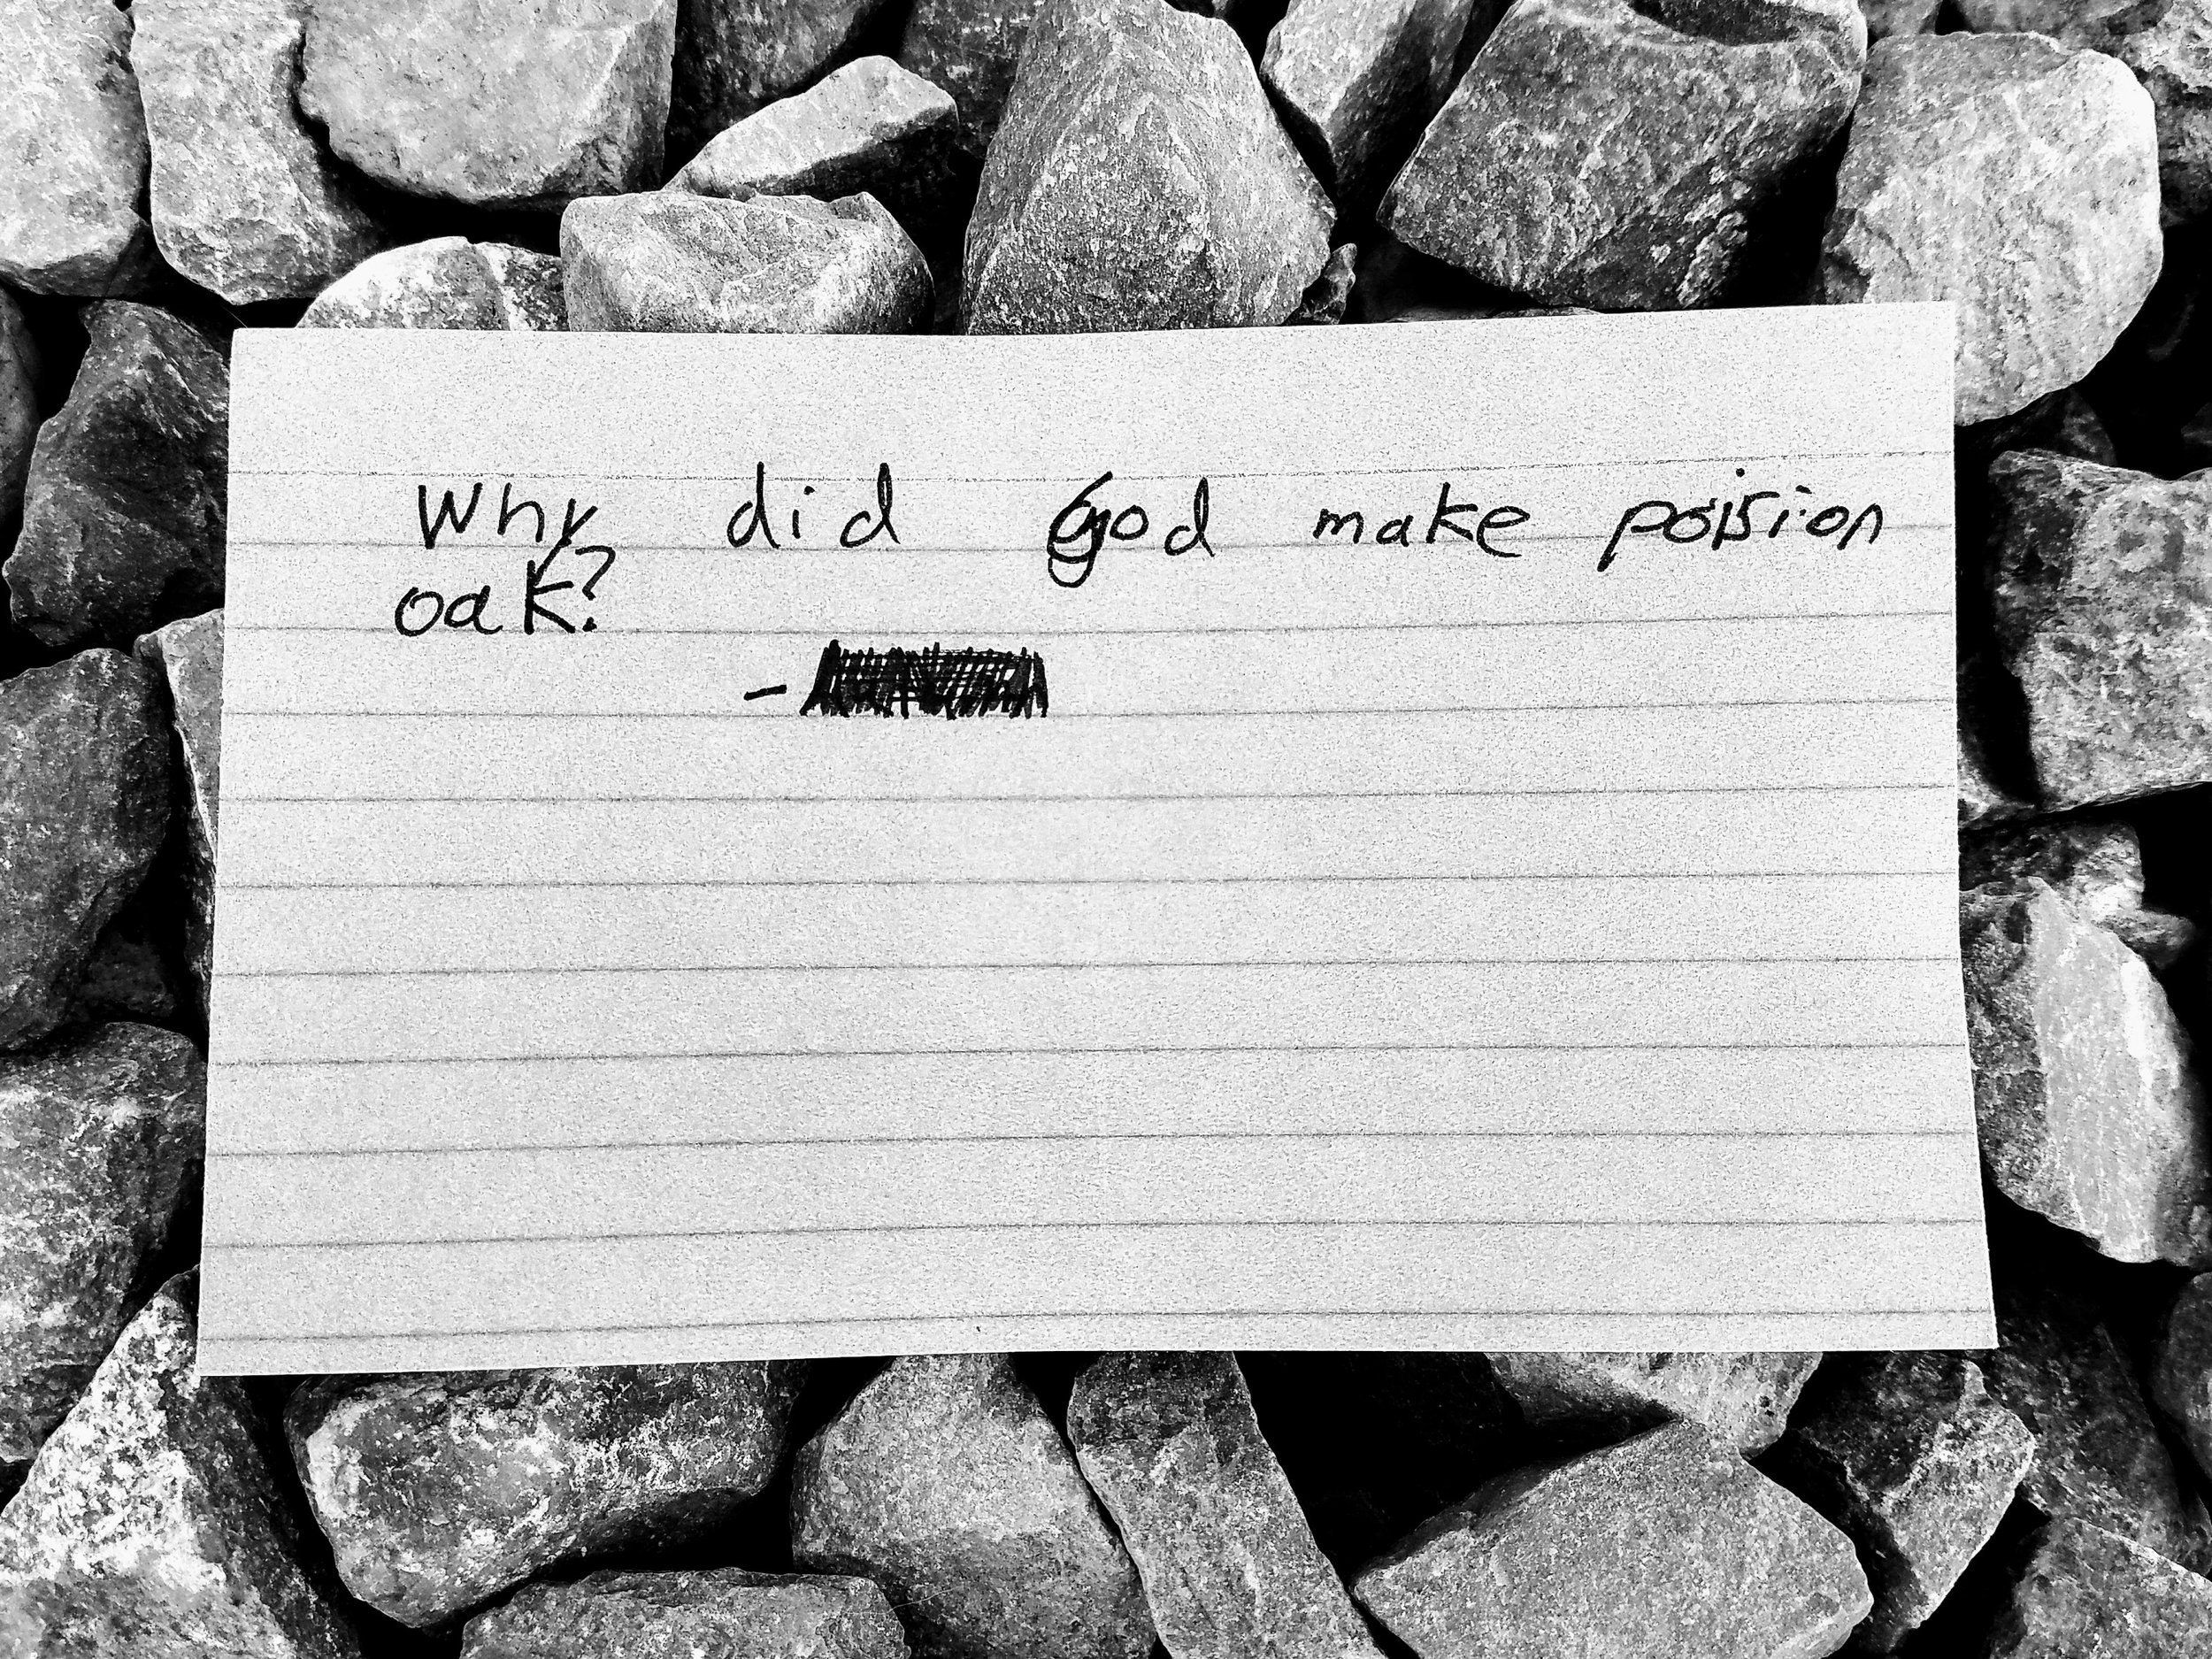 Why did God make poision
oak?
-